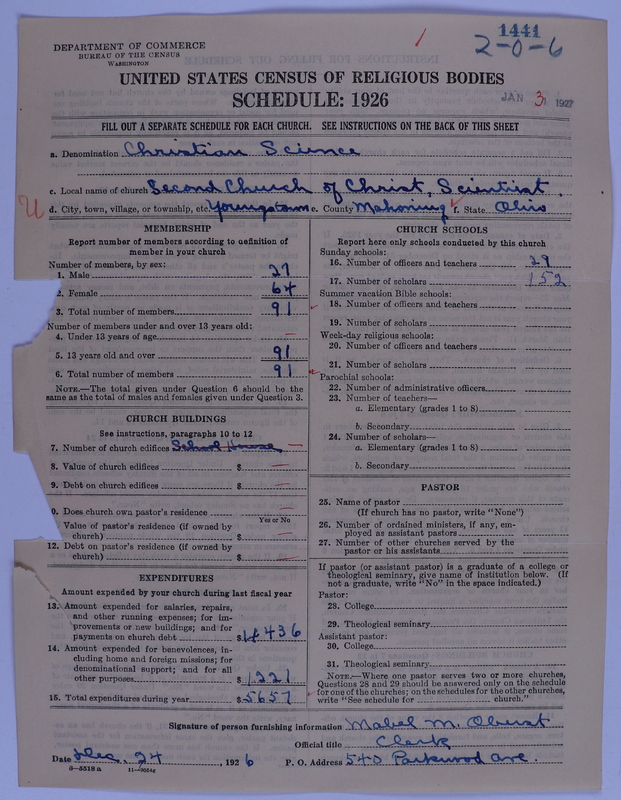 1441
2-0-6
DEPARTMENT OF COMMERCE
BUREAU OF THE CENSUS
WASHINGTON
UNITED STATES CENSUS OF RELIGIOUS BODIES
SCHEDULE: 1926
JAN 3 1927
FILL OUT A SEPARATE SCHEDULE FOR EACH CHURCH. SEE INSTRUCTIONS ON THE BACK OF THIS SHEET
a. Denomination Christian Science
c. Local name of church Second Church of Christ, Scientist.
U d. City, town, village, or township, etc. Youngstown e. County Mahoning f. State Ohio
MEMBERSHIP
Report number of members according to definition of member in your church
Number of members, by sex:
1. Male 27
2. Female 64
3. Total number of members 91
Number of members under and over 13 years old:
4. Under 13 years of age —
5. 13 years old and over 91
6. Total number of members 91
NOTE.—The total given under Question 6 should be the
same as the total of males and females given under Question 3.
CHURCH BUILDINGS
See instructions, paragraphs 10 to 12
7. Number of church edifices School House —
8. Value of church edifices $ —
9. Debt on church edifices $ —
0. Does church own pastor's residence —
Yes or No
Value of pastor's residence (if owned by
church) $ —
12. Debt on pastor's residence (if owned by
church) $ —
EXPENDITURES
Amount expended by your church during last fiscal year
13. Amount expended for salaries, repairs,
and other running expenses; for im-
provements or new buildings; and for
payments on church debt $ 4436
14. Amount expended for benevolences, in-
cluding home and foreign missions; for
denominational support; and for all
other purposes $ 1221
15. Total expenditures during year $ 5657
CHURCH SCHOOLS
Report here only schools conducted by this church
Sunday schools:
16. Number of officers and teachers 29
17. Number of scholars 152
Summer vacation Bible schools:
18. Number of officers and teachers
19. Number of scholars
Week-day religious schools:
20. Number of officers and teachers
21. Number of scholars
Parochial schools:
22. Number of administrative officers
23. Number of teachers—
a. Elementary (grades 1 to 8)
b. Secondary
24. Number of scholars—
a. Elementary (grades 1 to 8)
b. Secondary
PASTOR
25. Name of pastor
(If church has no pastor, write "None")
26. Number of ordained ministers, if any, em-
ployed as assistant pastors
27. Number of other churches served by the
pastor or his assistants
If pastor (or assistant pastor) is a graduate of a college or
theological seminary, give name of institution below. (If
not a graduate, write "No" in the space indicated.)
Pastor:
28. College
29. Theological seminary
Assistant pastor:
30. College
31. Theological seminary
NOTE.—Where one pastor serves two or more churches,
Questions 28 and 29 should be answered only on the schedule
for one of the churches; on the schedules for the other churches,
write "See schedule for church."
Signature of person furnishing information Mabel M. Oberst
Official title Clerk
Date Dec. 24, 1926 P. O. Address 540 Parkwood Ave.